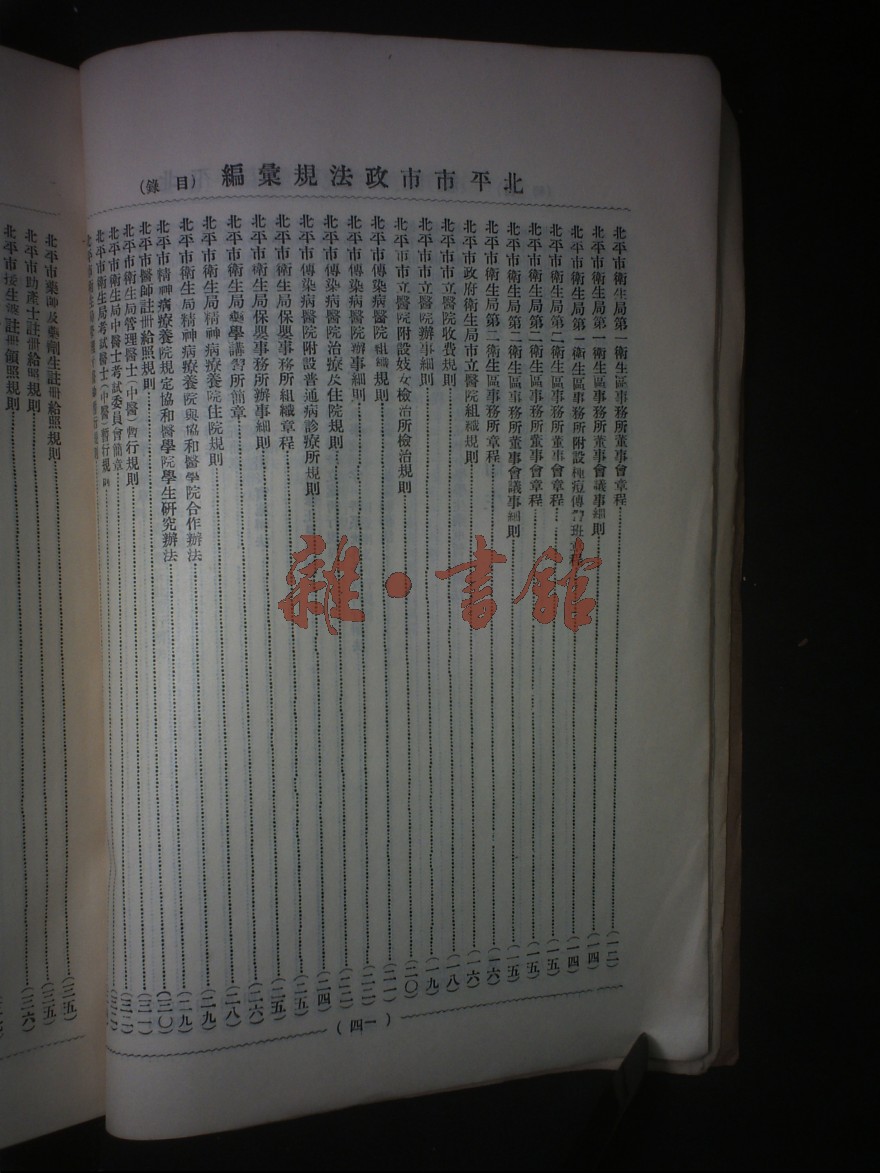 北平市市政法規彙編(目錄)
北平市衛生局第一衛生區事務所董事會章程(一二)
北平市衛生局第一衛生區事務所董事會議事細則(一四)
北平市衛生局第一衛生區事務所附設種痘傳習班(一四)
北平市衛生局第二衛生區事務所董事會章程(一五)
北平市衛生局第二衛生區事務所董事會章程(一五)
北平市衛生局第二衛生區事務所董事會議事細則(一五)
北平市衛生局第二衛生區事務所章程(一六)
北平市政府衛生局市立醫院組織規則(一六)
北平市市立醫院收費規則(一八)
北平市市立醫院辦事細則(一九)
北平市市立醫院附設妓女檢治所檢治規則(二〇)
北平市傳染病醫院組織規則(二一)
北平市傳染病醫院辦事細則(二二)
北平市傳染病醫院治療及住院規則(二二)
北平市傳染病醫院附設普通病診療所規則(二四)
北平市衛生局保嬰事務所組織章程(二五)
北平市衛生局保嬰事務所辦事細則(二五)
北平市衛生局藥學講習所簡章(二六)
北平市衛生局精神病療養院住院規則(二八)
北平市衛生局精神病療養院與協和醫學院合作辦法(二九)
北平市精神病療養院規定協和醫學院學生研究辦法(二九)
北平市醫師註册給照規則(三〇)
北平市衛生局管理醫士(中醫)暫行規則(三一)
北平市衛生局中醫士考試委員會簡章(三二)
北平市衛生局考試醫士(中醫)暫行規則
北平市藥師及藥劑生註册給照規則(三五)
北平市助產士註册給照規則(三五)
北平市接生婆註册領照規則(三六)
(一四)
雜·書館